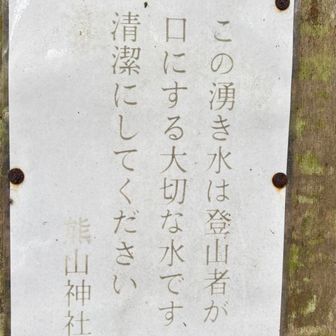 この湧き水は登山者が
口にする大切な水です、
清潔にしてください
熊山神社